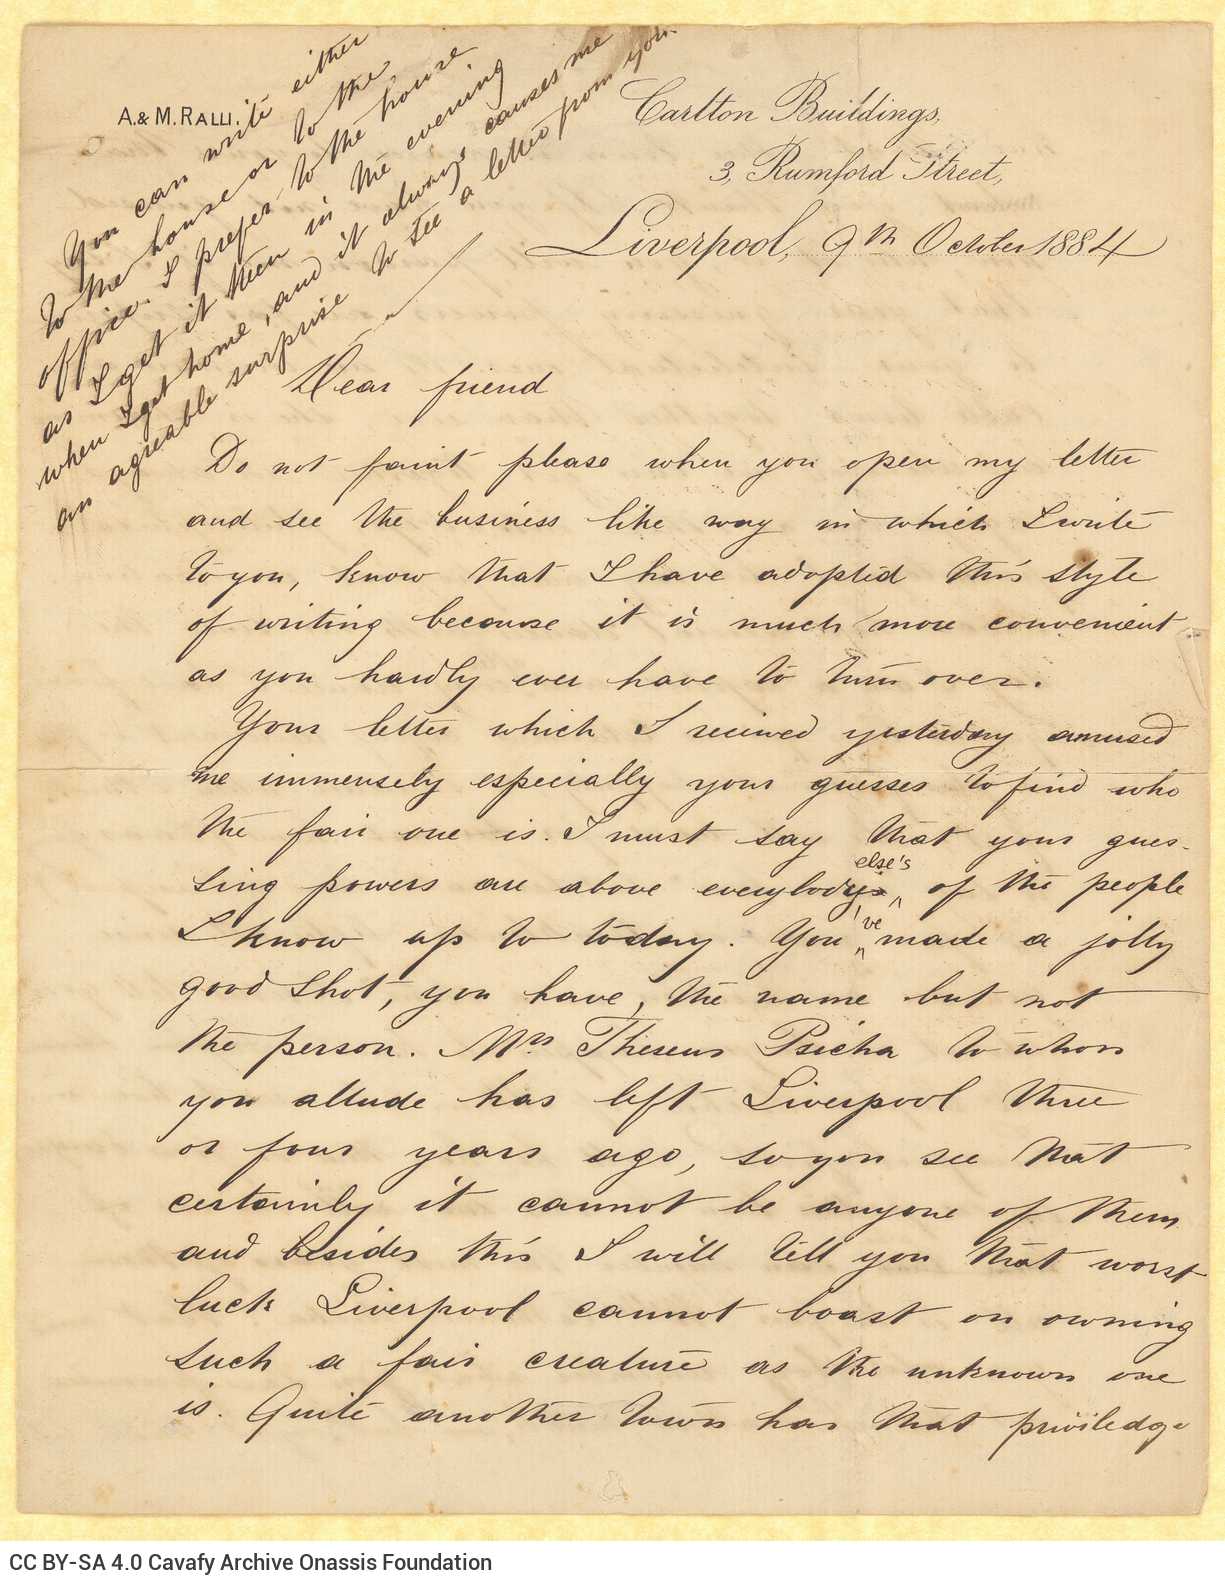 A. & M. RALLI.
Carlton Buildings,
3, Rumford Street,
Liverpool, 9th October 1884
You can write either
to the house or to the
office. I prefer to the house
as I get it then in the evening
when I get home, and it always causes me
an agreable surprise to see a letter from you.
Dear friend
Do not faint please when you open my letter
and see the business like way in which I write
to you, know that I have adopted this style
of writing because it is much more convenient
as you hardly ever have to turn over.
Your letter which I recieved yesterday amused
me immensely especially your guesses to find who
the fair one is. I must say that your gues-
sing powers are above everybody else's of the people
I know up to today. You've made a jolly
good shot, you have, the name but not
the person. Mrs Theseus Psicha to whom
you allude has left Liverpool three
or four years ago, so you see that
certainly it cannot be anyone of them
and besides this I will tell you that worst
luck Liverpool cannot boast on owning
such a fair creature as the unknown one
is. Quite another town has that priviledge
CC BY-SA 4.0 Cavafy Archive Onassis Foundation